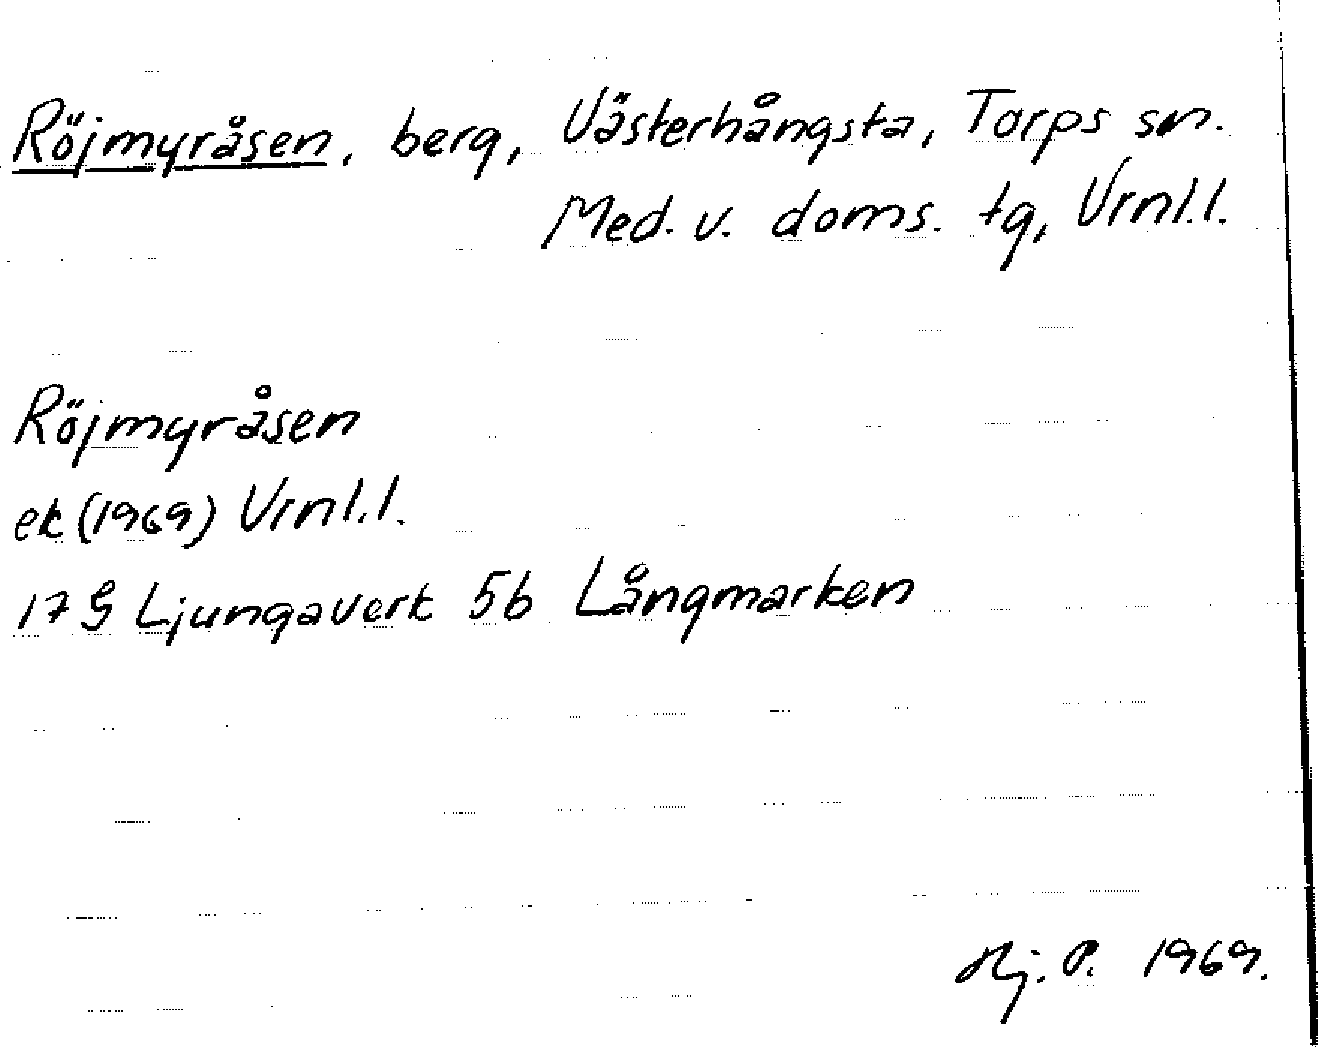 Röjmyråsen, berg, Västerhångsta, Torps sn.
Med. v. doms. tg, Vrnl.l.
Röjmyråsen
ek (1969) Vrnl.l.
17 G Ljungaverk 5b Långmarken
Hj. P. 1969.